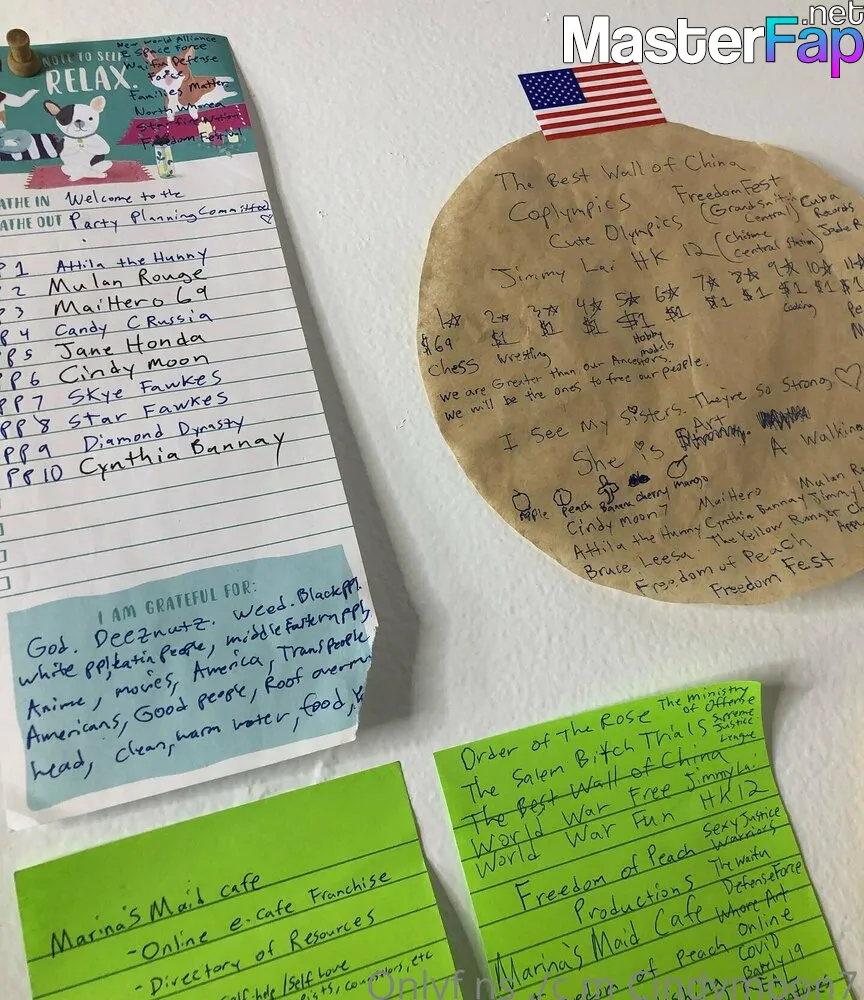 MasterFap.net
NOTE TO SELF
RELAX.
New World Alliance
Space Force
Waifu Defense
Force
Families Matter
North Whorea
Starfire Nation
Freedom Festival
ATHE IN Welcome to the
ATHE OUT Party Planning Committee
PP 1 Attila the Hunny
P 2 Mulan Rouge
P 3 MaiHero 69
PP 4 Candy C Russia
PP 5 Jane Honda
PP 6 Cindy Moon
PP 7 Skye Fawkes
PP 8 Star Fawkes
PP 9 Diamond Dynasty
PP 10 Cynthia Bannay
I AM GRATEFUL FOR:
God. Deeznutz. Weed. Black ppl.
white ppl, Latin people, middle Eastern ppl,
Anime, movies, America, Trans people
Americans, Good people, Roof over m
head, clean, warm water, food,
The Best Wall of China
Coplympics FreedomFest
Cute Olympics (Grandslnitil Central) Cuba Records
Jimmy Lai HK 12 (Chisme Central Station) Jade R
1☆ 2☆ 3☆ 4☆ 5☆ 6☆ 7☆ 8☆ 9☆ 10☆ 11☆
$69 $1 $1 $1 $1 $1 $1 $1 $1 $1 $1
Chess Wrestling Hobby models Cooking
we are Greater than our Ancestors.
we will be the ones to free our people.
I See My Sisters. They're So Strong,
She is Strong. Art A Walking
Apple Peach Banana cherry mango
Cindy moon7 MaiHero Mulan R
Attila the Hunny Cynthia Bannay Jimmy L
Bruce Leesa The Yellow Ranger Ch
Freedom of Peach
Freedom Fest
Order of The Rose The Ministry of Offense
The Salem Bitch Trials Supreme Justice League
The Best Wall of China
World War Free Jimmy Lai
World War Fun HK 12
Freedom of Peach Sexy Justice Warriors
Productions The Waifu
Marina's Maid Cafe Defense Force
Whore Art
of Peach Online
Covid
Barely 19
Marina's Maid cafe
- Online e-cafe Franchise
- Directory of Resources
Self help / Self Love
counselors, etc